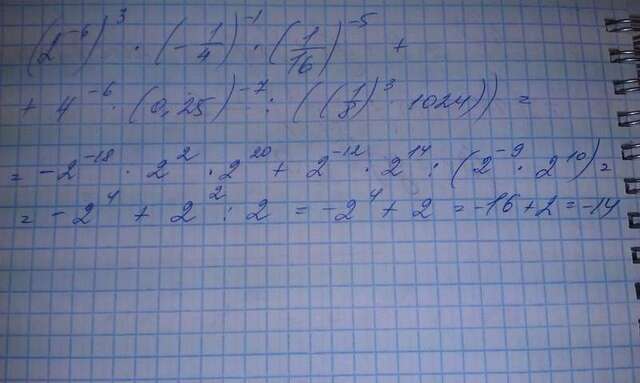 (2⁻⁶)³ · (-1/4)⁻¹ · (1/16)⁻⁵ +
+ 4⁻⁶ · (0,25)⁻⁷ : ((1/8)³ · 1024)) =
= -2⁻¹⁸ · 2² · 2²⁰ + 2⁻¹² · 2¹⁴ : (2⁻⁹ · 2¹⁰) =
= -2⁴ + 2² : 2 = -2⁴ + 2 = -16 + 2 = -14